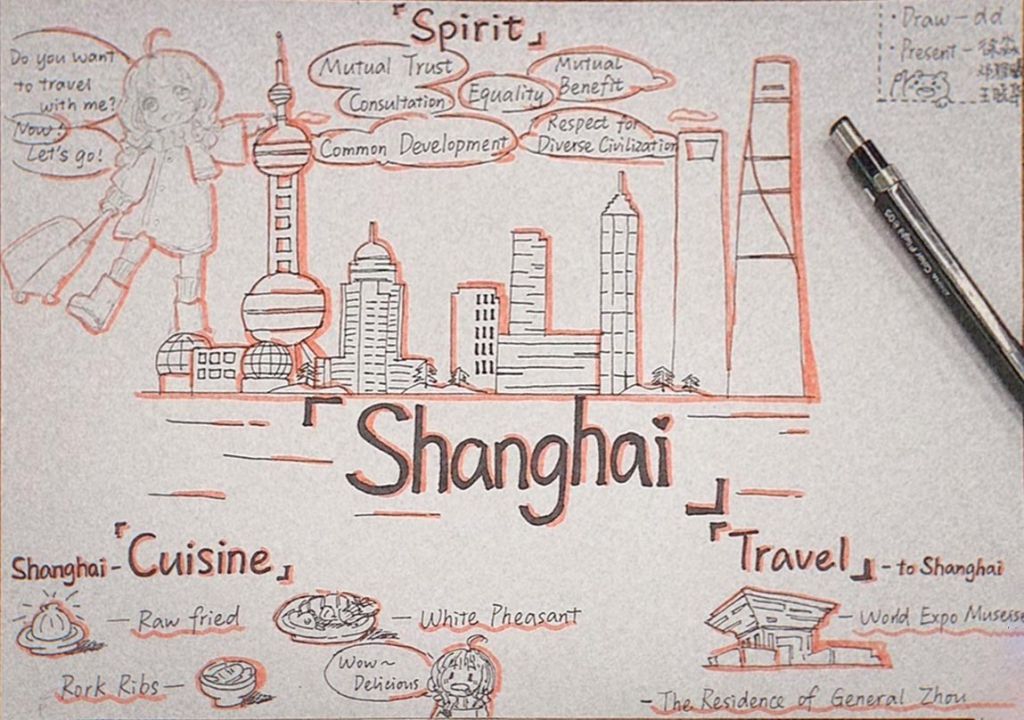 「Spirit」
· Draw - dd
· Present - 徐淼
Do you want
to travel
with me?
Now!
Let's go!
Mutual Trust
Consultation
Equality
Mutual
Benefit
Common Development
Respect for
Diverse Civilization
「Shanghai」
Shanghai-「Cuisine」
- Raw fried
- White Pheasant
Rork Ribs -
Wow~
Delicious
「Travel」- to Shanghai
- World Expo
- The Residence of General Zhou